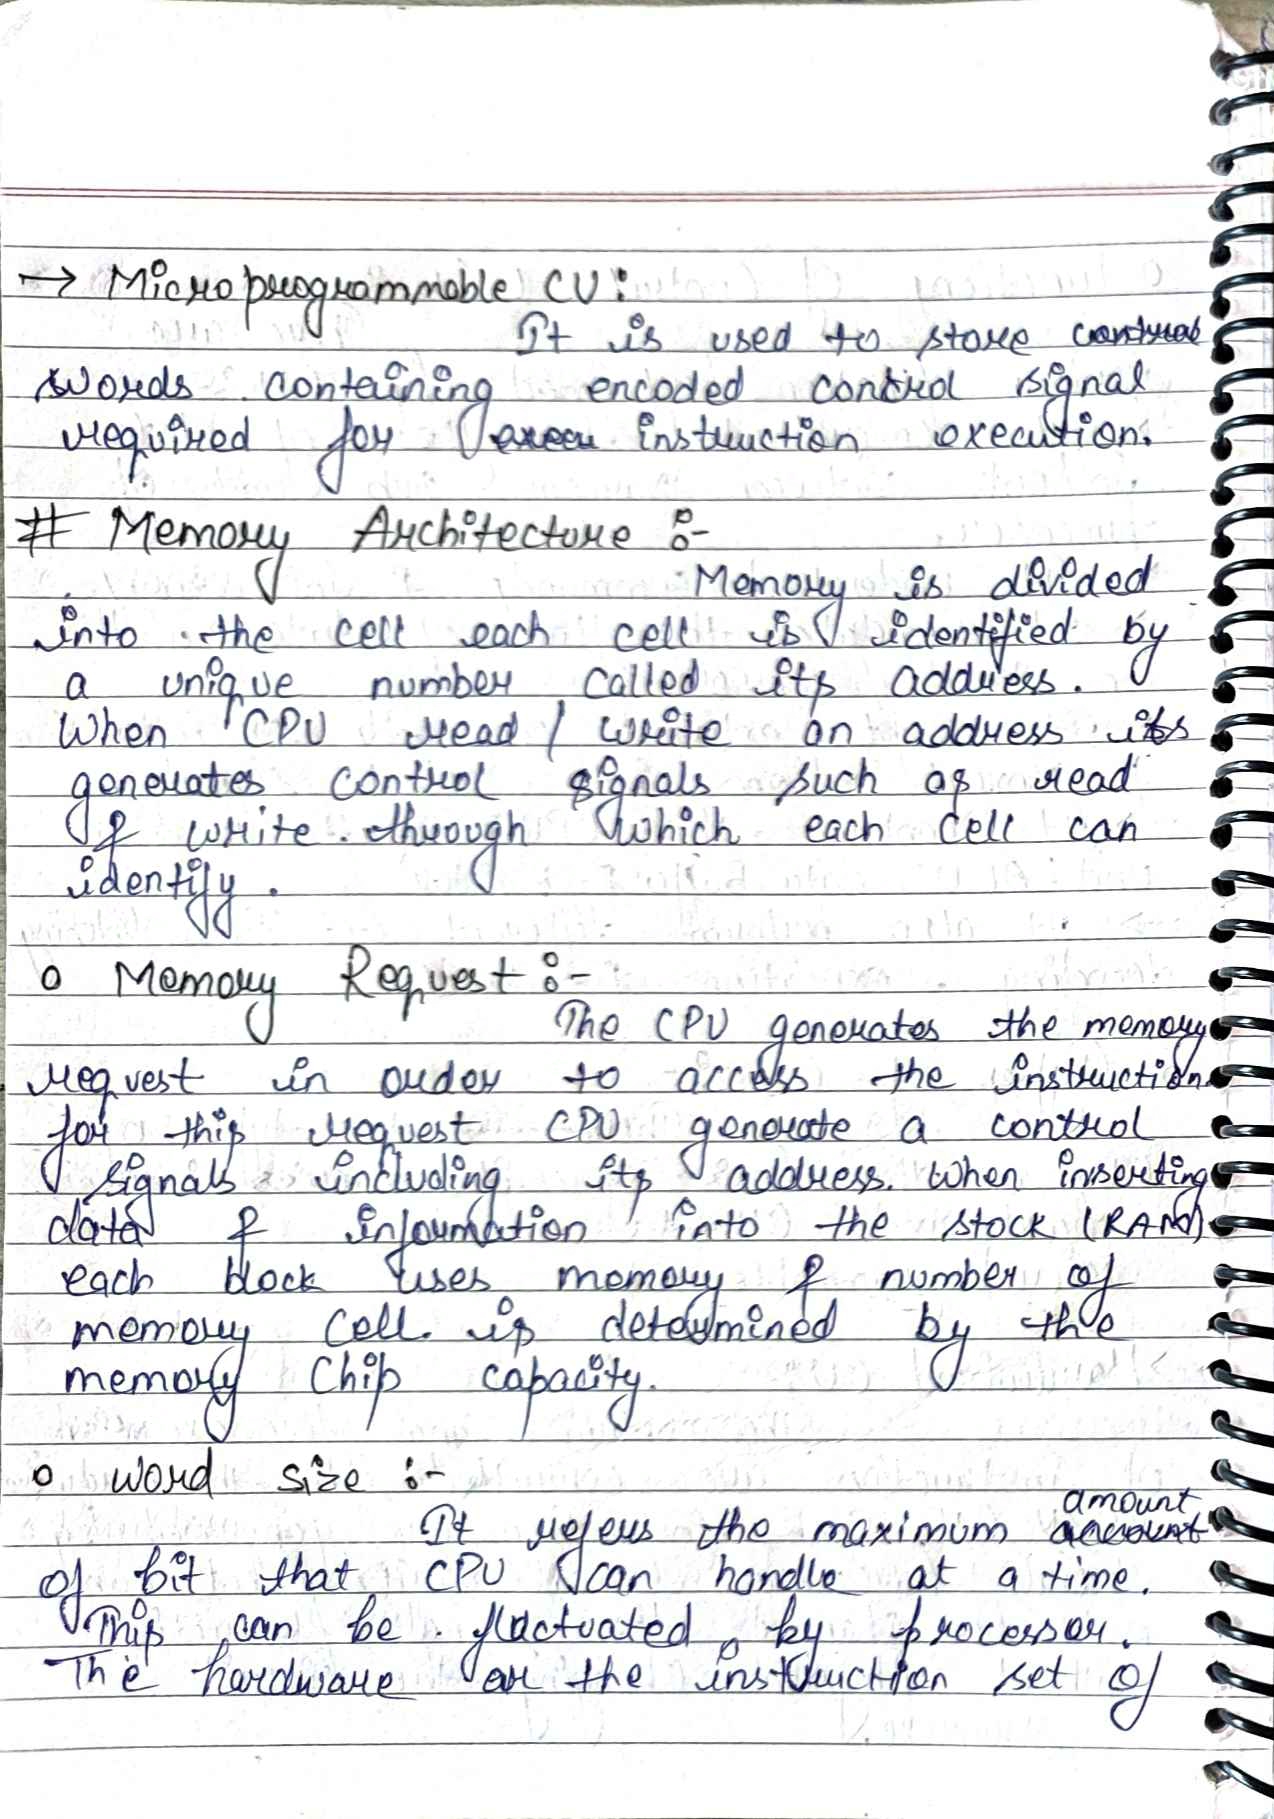 → Microprogrammable CU:
It is used to store control
words containing encoded control signal
required for instruction execution.
# Memory Architecture :-
Memory is divided
into the cell each cell is identified by
a unique number called its address.
When CPU read / write an address its
generates control signals such as read
& write through which each cell can
identify.
o Memory Request :-
The CPU generates the memory
request in order to access the instruction.
for this request CPU generate a control
signals including its address. When inserting
data & information into the stock (RAM)
each block uses memory & number of
memory cell. is determined by the
memory chip capacity.
o word size :-
amount
It refers the maximum
of bit that CPU can handle at a time.
This can be flactuated by processor.
The hardware or the instruction set of